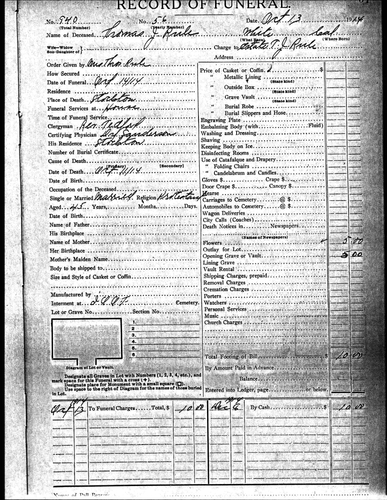 RECORD OF FUNERAL
No. 540 No. 56 Date Oct 13
(Total Number) (Yearly Number)
Name of Deceased, Thomas J. Rule White
(What Race) (Where Born)
Wife-Widow
Son-Daughter of
Charge to Estate T. J. Rule
Order Given by Mrs Thos Rule
How Secured
Date of Funeral Oct 14/14
Residence
Place of Death
Funeral Services at House
Time of Funeral Service
Clergyman Rev.
Certifying Physician
His Residence
Number of Burial Certificate
Cause of Death
(Secondary)
Date of Death Oct 11/14
Date of Birth
Occupation of the Deceased
Single or Married Married Religion Protestant
Aged 45 Years, Months, Days.
Date of Birth
Name of Father
His Birthplace
Name of Mother
Her Birthplace
Mother's Maiden Name
Body to be shipped to
Size and Style of Casket or Coffin
Manufactured by
Interment at I.O.O.F. Cemetery.
Lot or Grave No. Section No.
1
2
3
4
5
Diagram of Lot or Vault.
Designate all Graves in Lot with Numbers (1, 2, 3, 4, etc.), and
mark space for this Funeral with a cross (+).
Designate place for Monument with a small square (□).
Use space to the right of Diagram for the names of those buried
in Lot.
Price of Casket or Coffin $
Metallic Lining
(State kind)
Outside Box
(State kind)
Grave Vault
(State kind)
Burial Robe
Burial Slippers and Hose
Engraving Plate
Embalming Body (with Fluid)
Washing and Dressing
Shaving
Keeping Body on Ice
Disinfecting Rooms
Use of Catafalque and Drapery
" Folding Chairs
" Candelabrum and Candles
Gloves $ Crape $
Door Crape $ Canopy $
Hearse
Carriages to Cemetery @ $
Automobiles to Cemetery @ $
Wagon Deliveries
City Calls (Coaches)
Death Notices in Newspapers
(Names of Newspapers)
Flowers 5 00
Outlay for Lot
Opening Grave or Vault 5 00
Lining Grave
Vault Rental
Shipping Charges, prepaid
Removal Charges
Cremation Charges
Porters
Watchers
Personal Services
Music
Church Charges
Total Footing of Bill 10 00
By Amount Paid in Advance
Balance
Entered into Ledger, page or below.
Oct 13 To Funeral Charges Total, $ 10 00 Dec 6 By Cash $ 10 00